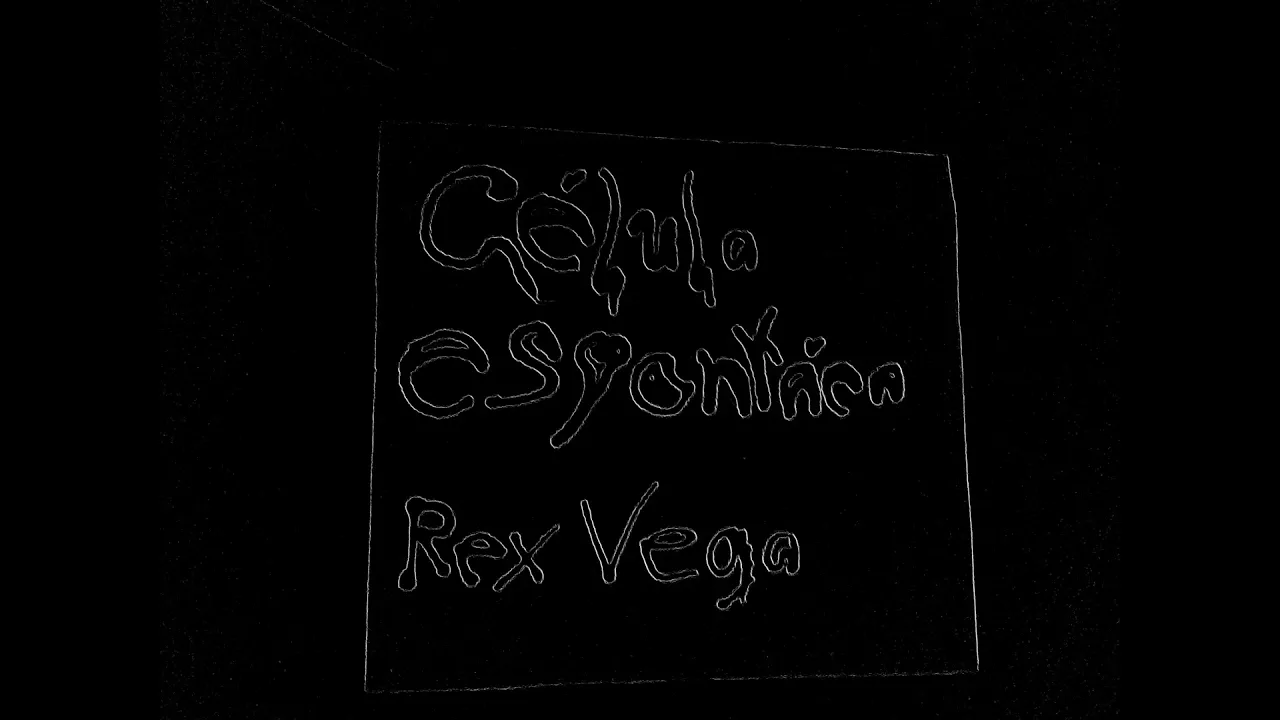 Célula
espontáea
Rex Vega